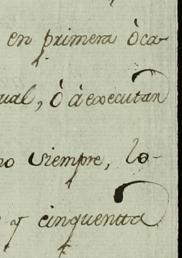 en primera òca-
ual, ò à executan
no siempre, lo-
y cinquenta